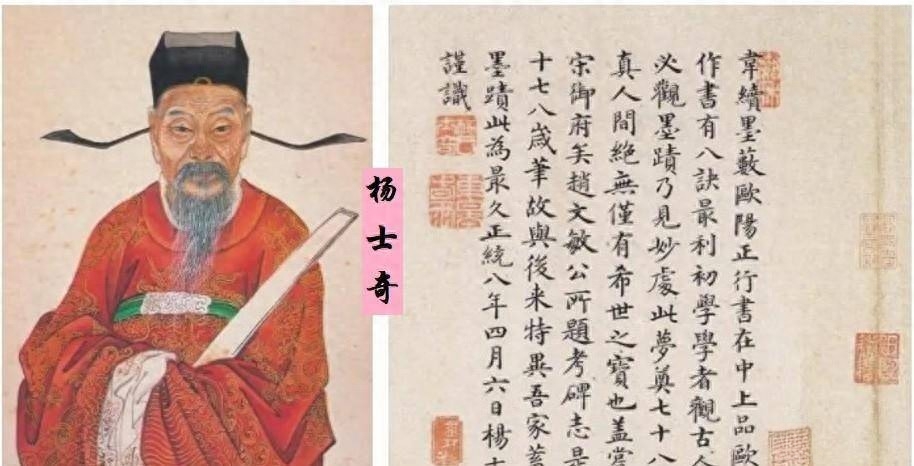 杨士奇
韋續墨藪歐陽正行書在中上品歐
作書有八訣最利初學學者觀古
必觀墨蹟乃見妙處此夢奠七十八
真人間絶無僅有希世之寶也盖嘗
宋御府矣趙文敏公所題考碑志是
十七八歳筆故與後来特異吾家蓄
墨蹟此為最久正統八年四月六日楊
謹識